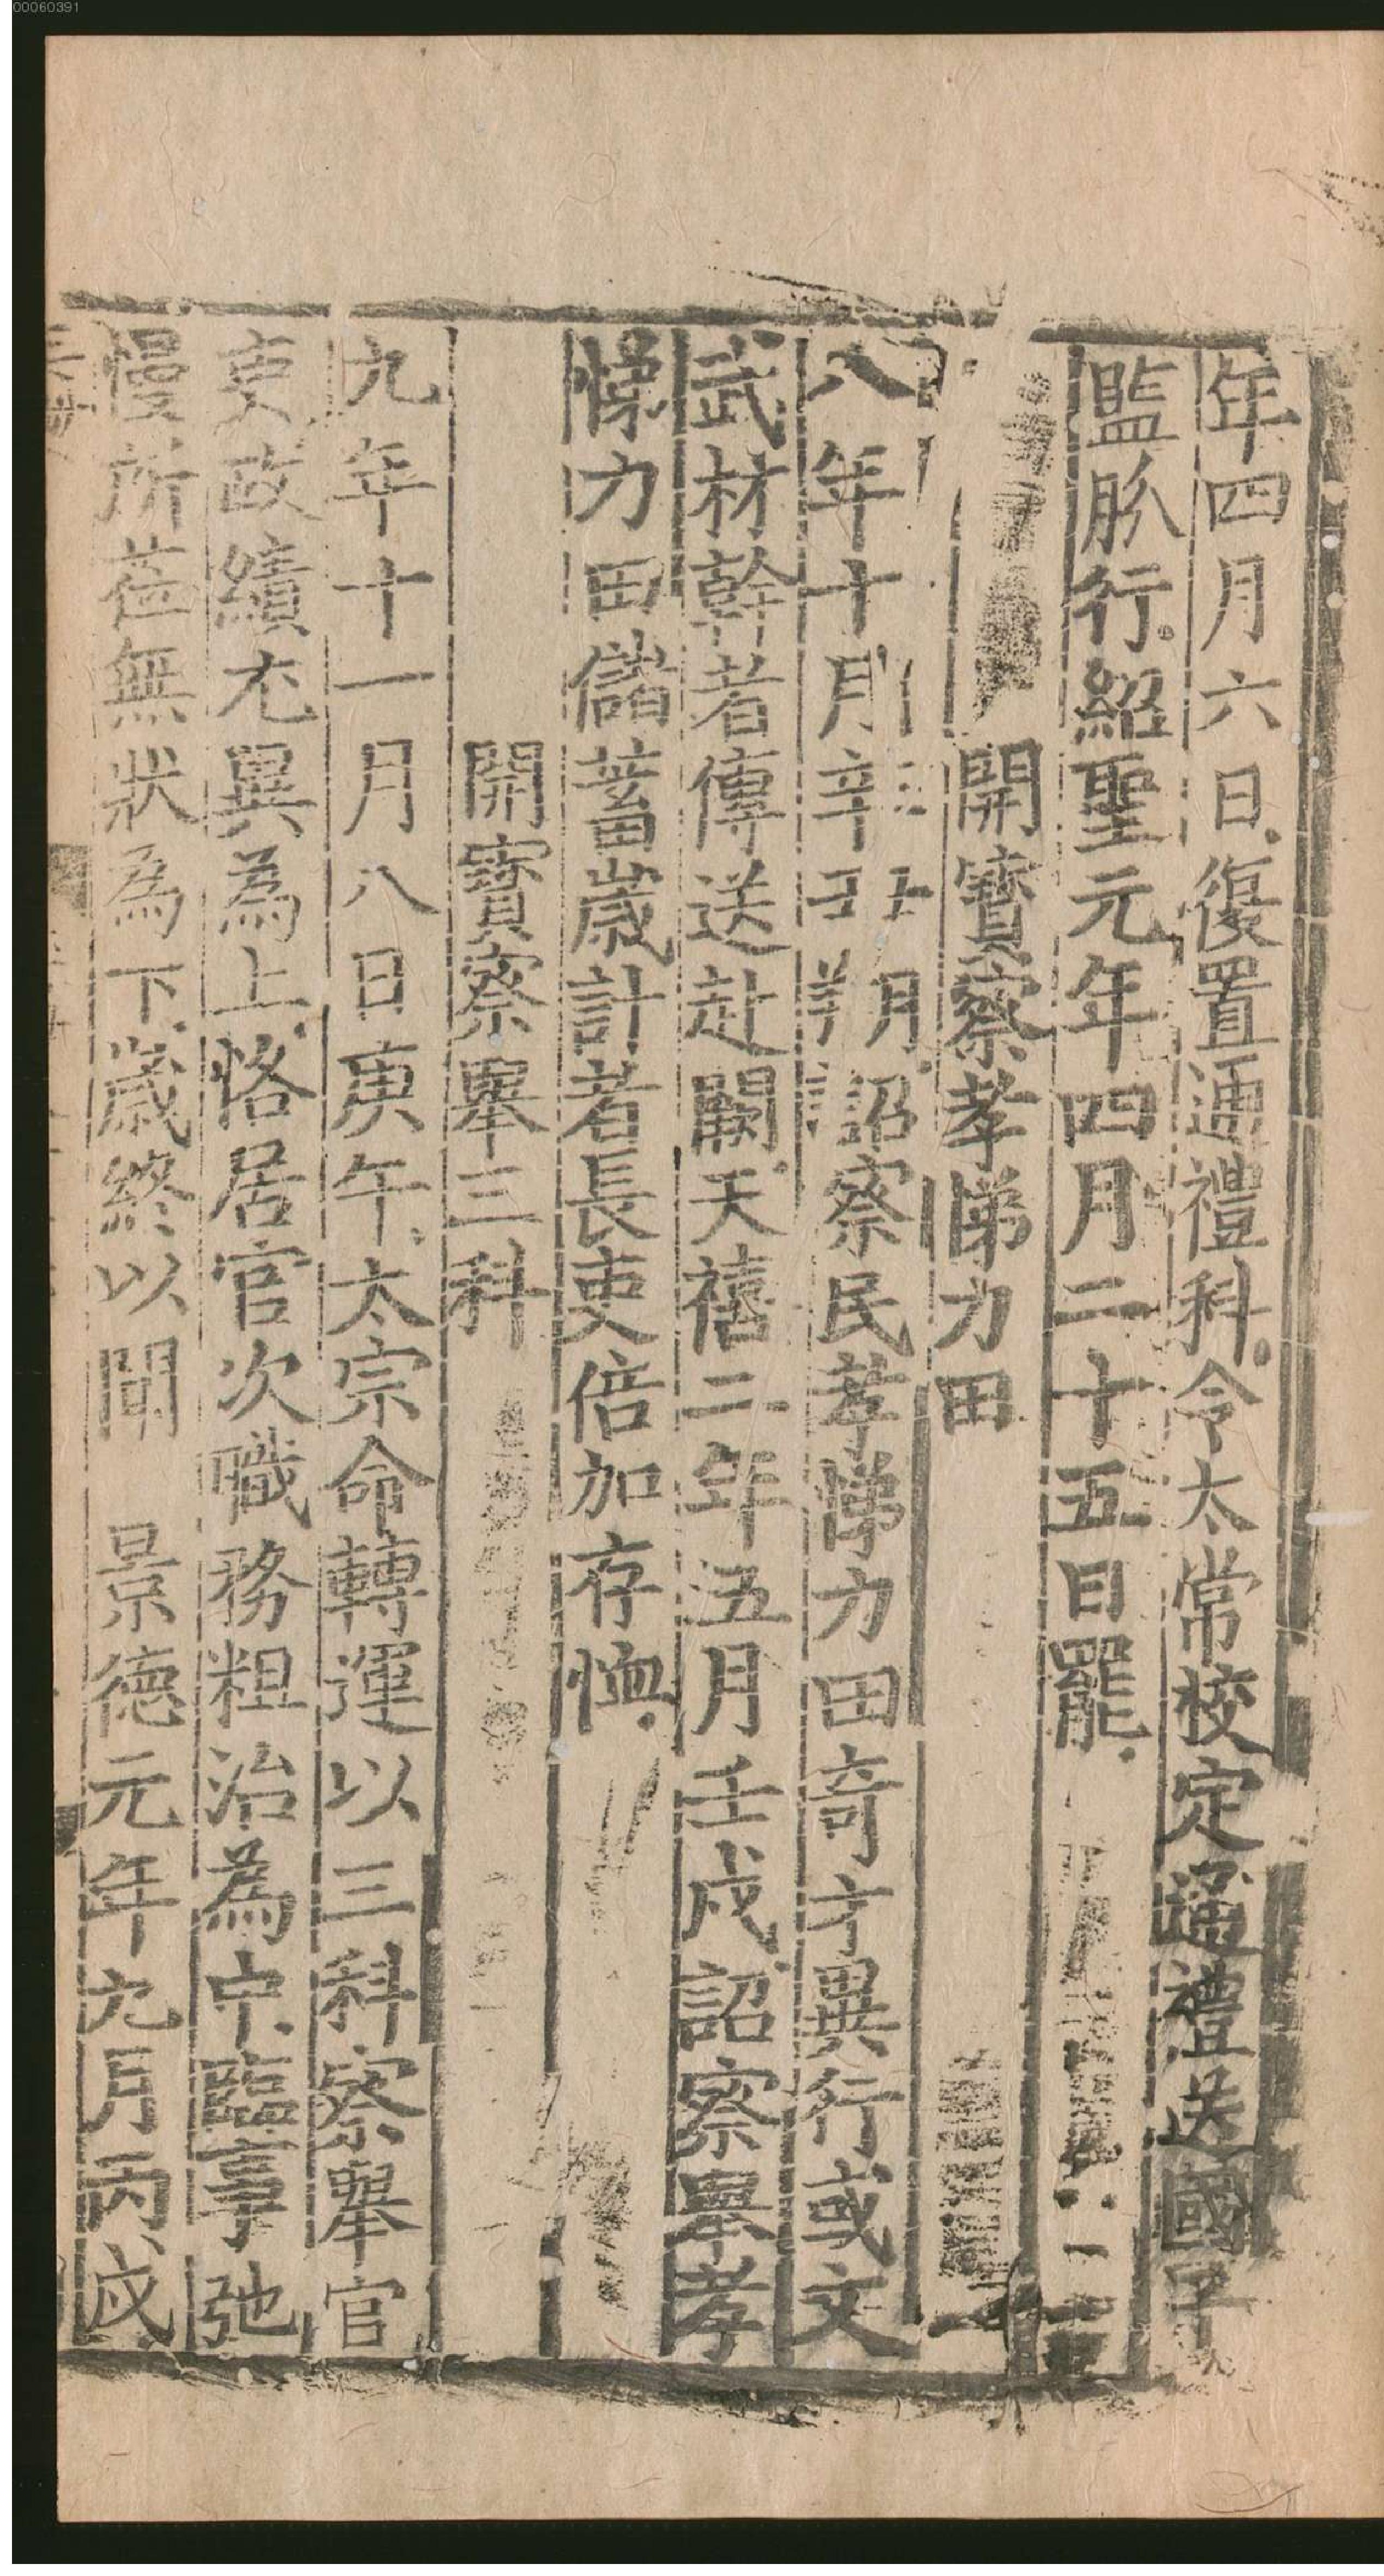 00060391
年四月六日復置通禮科令太常校定通禮送國子
監版行紹聖元年四月二十五日罷
開寶察孝悌力田
八年十月辛丑朔詔察民孝悌力田奇才異行或文
武材幹者傳送赴闕天禧二年五月壬戌詔察舉孝
悌力田儲蓄歲計者長吏倍加存恤
開寶察舉三科
九年十一月八日庚午太宗命轉運以三科察舉官
吏政績尤異為上恪居官次職務粗治為中臨事弛
慢所莅無狀為下歲終以聞　景德元年九月丙戌